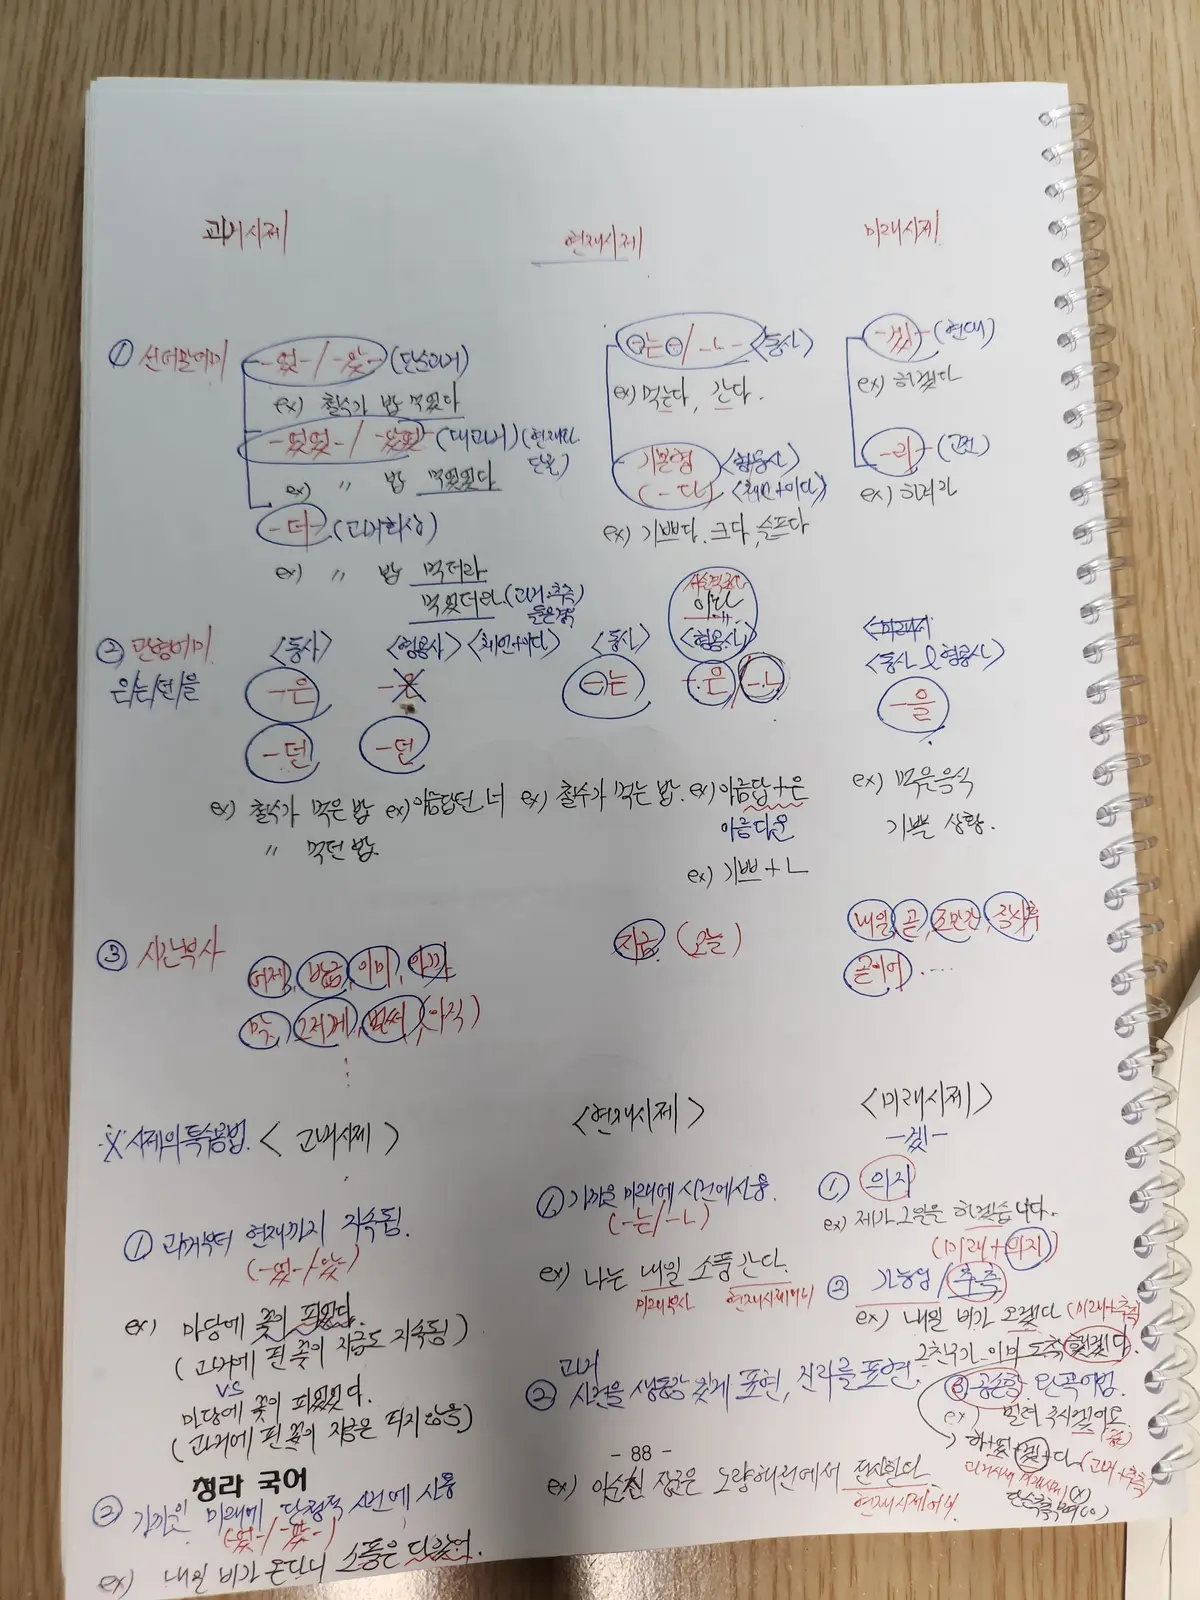 과거시제 현재시제 미래시제
① 선어말어미 -었-/-았- (단순과거) -는-/-ㄴ- <동사> -겠- (현대)
ex) 철수가 밥 먹었다 ex) 먹는다, 간다. ex) 하겠다
-었었-/-았었- (대과거) (현재와 단절) 기본형 (-다) <형용사> <체언+이다> -리- (고전)
ex) 〃 밥 먹었었다 ex) 기쁘다, 크다, 슬프다 ex) 하리라
-더- (과거회상)
ex) 〃 밥 먹더라
먹었더라 (과거+추측)
② 관형어미 <동사> <형용사> <체언+이다> <동사> <형용사> <동사 & 형용사>
은/는/던/을 -은 -은 -는 -은/-ㄴ -을
-던 -던
ex) 철수가 먹은 밥 ex) 아름답던 너 ex) 철수가 먹는 밥. ex) 아름답+은 ex) 먹을 음식
〃 먹던 밥. 아름다운 기쁠 상황.
ex) 기쁘+ㄴ
③ 시간부사 어제, 방금, 이미, 아까 지금 (오늘) 내일, 곧, 조만간, 잠시후
막, 그저께, 벌써 (아직) 곧이어 ....
※ 시제의 특수용법. < 과거시제 > <현재시제> <미래시제>
-겠-
① 과거부터 현재까지 지속됨. ① 가까운 미래에 사건에 사용. ① 의지
(-었-/-았-) (-는/-ㄴ) ex) 제가 그 일을 하겠습니다.
(미래+의지)
ex) 마당에 꽃이 피었다. ex) 나는 내일 소풍 간다. ② 가능성/추측
(과거에 핀 꽃이 지금도 지속됨) 미래부사 현재시제어미 ex) 내일 비가 오겠다 (미래+추측)
vs
마당에 꽃이 피었었다. ② 과거 사건을 생동감 있게 표현, 진리를 표현. 그 친구가 이미 도착했겠다.
(과거에 핀 꽃이 지금은 피지 않음) ③ 공손함, 완곡어법.
ex) 빌려 주시겠어요
- 88 -
하+였+겠+다 (과거+추측)
청라 국어 ex) 이순신 장군은 노량해전에서 전사한다.
현재시제어미
② 가까운 미래에 단정적 사건에 사용
(-었-/-았-)
ex) 내일 비가 온다니 소풍은 다 갔어.